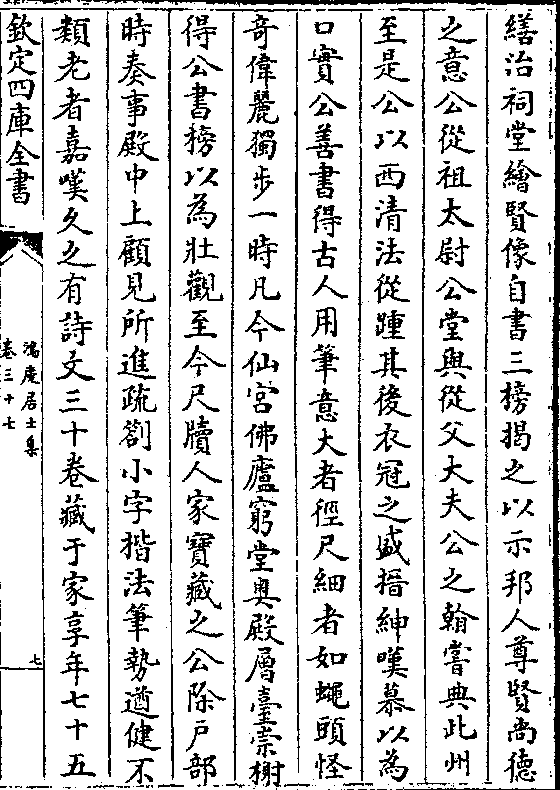 繕治祠堂繪賢像自書三榜揭之以示邦人尊賢尚德
之意公從祖太尉公堂與從父大夫公之翰嘗典此州
至是公以西清法從踵其後衣冠之盛搢紳嘆慕以為
口實公善書得古人用筆意大者徑尺細者如蠅頭怪
竒偉麗獨步一時凡今仙宫佛廬窮堂奥殿層臺崇榭
得公書榜以為壯觀至今尺牘人家寶藏之公除户部
時奏事殿中上顧見所進疏劄小字楷法筆勢遒健不
類老者嘉嘆久之有詩文三十卷藏于家享年七十五
欽定四庫全書
鴻慶居士集
卷三十七
七